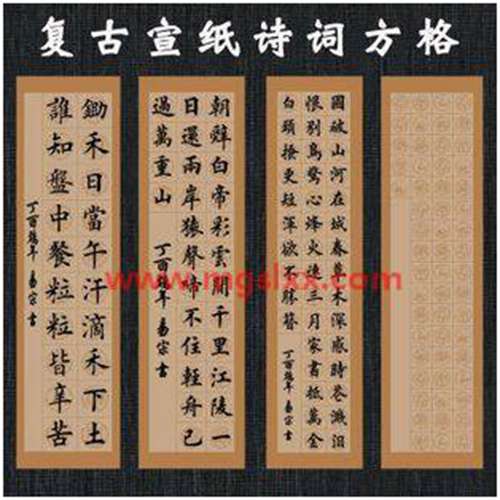 复古宣纸诗词方格
鋤禾日當午汗滴禾下土
誰知盤中餐粒粒皆辛苦
丁酉鷄年 易宗書
朝辭白帝彩雲間千里江陵一
日還兩岸猿聲啼不住輕舟已
過萬重山
丁酉鷄年 易宗書
國破山河在城春草木深感時花濺泪
恨别鳥驚心烽火連三月家書抵萬金
白頭搔更短渾欲不勝簪
丁酉鷄年 易宗書
www.mgslxx.com